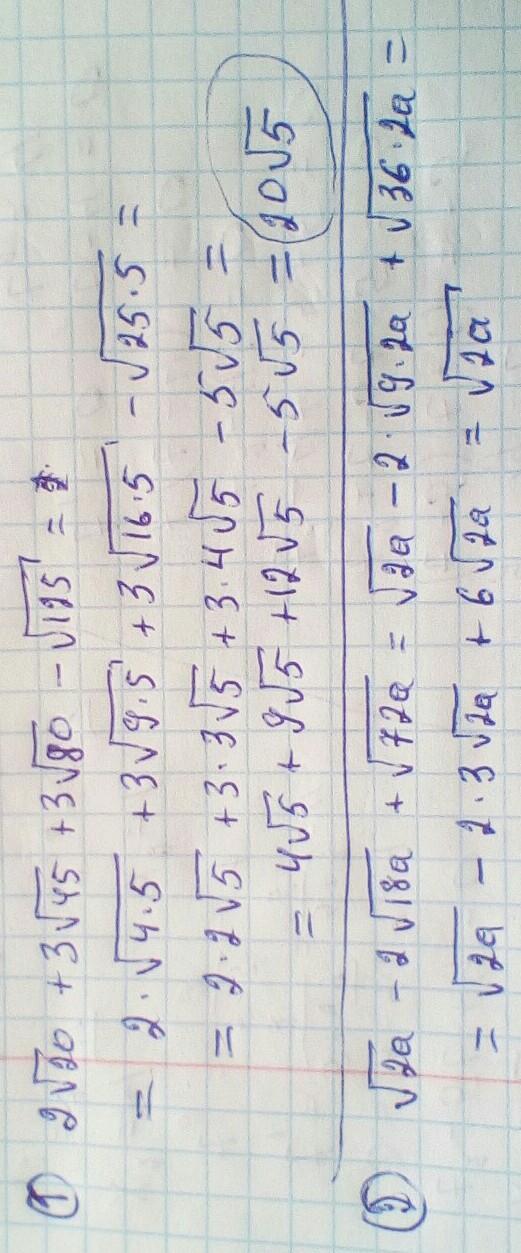 ① 2√20 + 3√45 + 3√80 - √125 =
= 2·√4·5 + 3√9·5 + 3√16·5 - √25·5 =
= 2·2√5 + 3·3√5 + 3·4√5 - 5√5 =
= 4√5 + 9√5 + 12√5 - 5√5 = 20√5
② √2a - 2√18a + √72a = √2a - 2·√9·2a + √36·2a =
= √2a - 2·3√2a + 6√2a = √2a